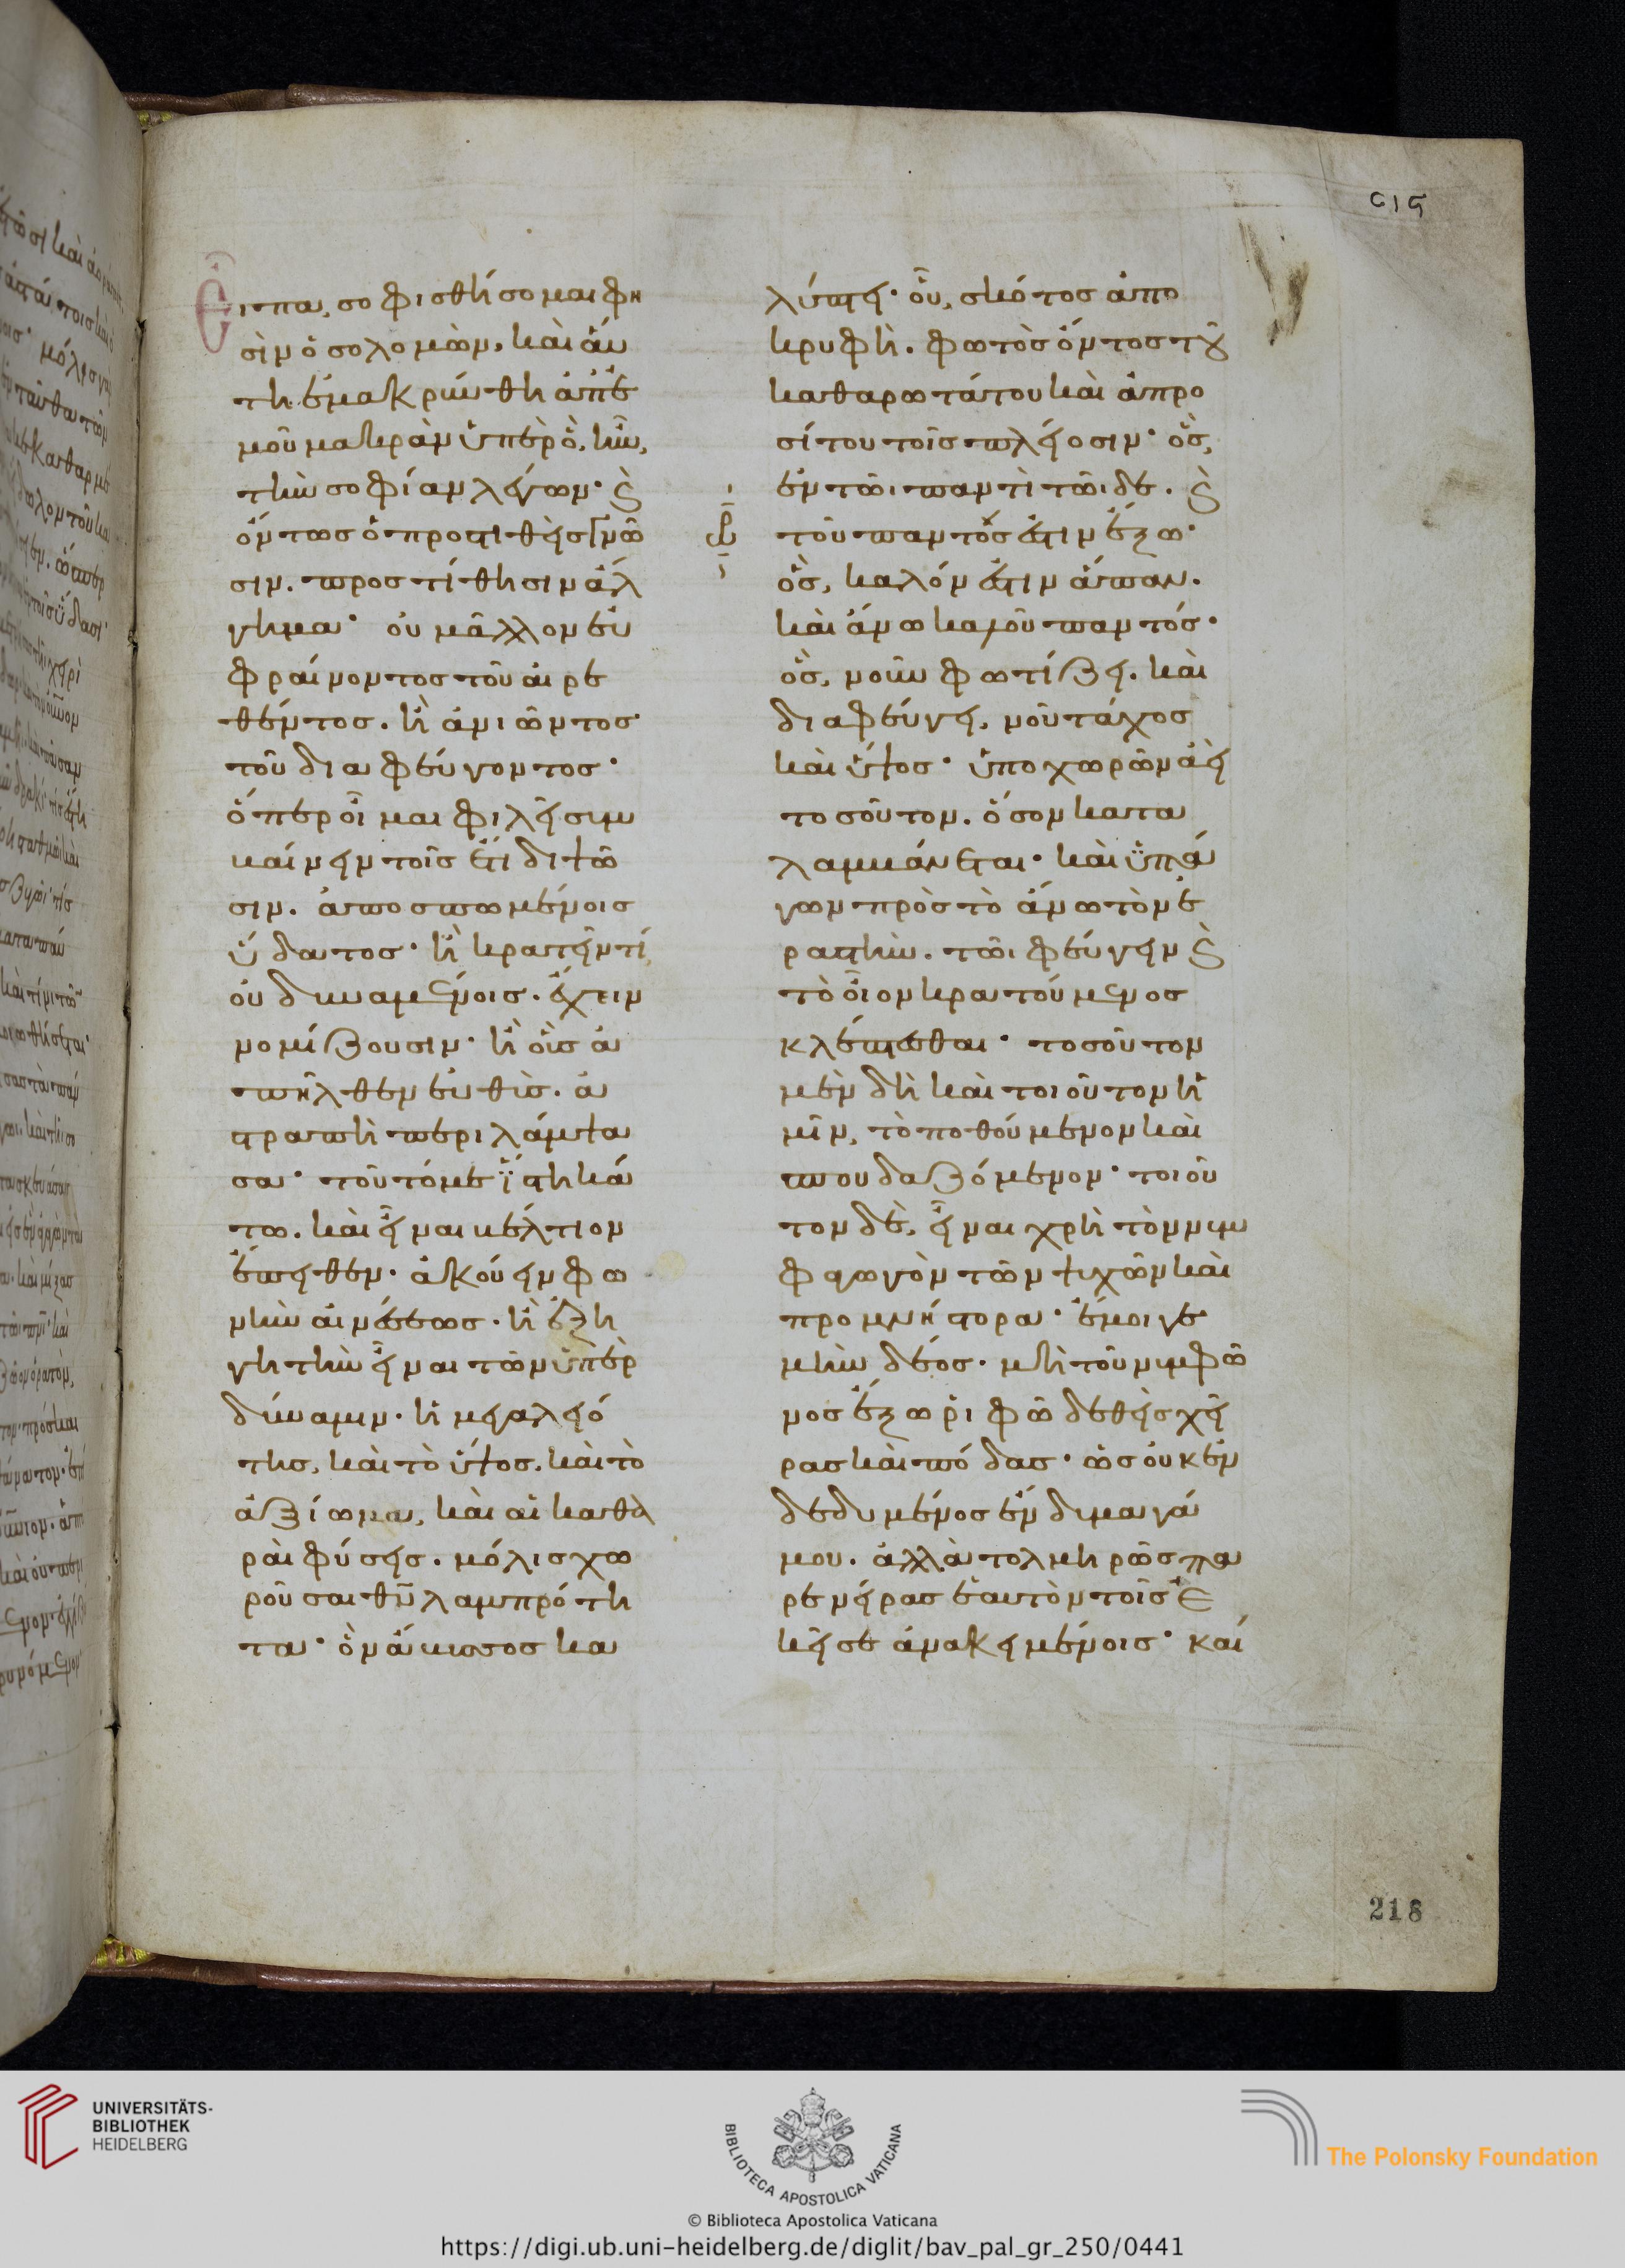 σιϛ
Εἶπα, σοφισθήσομαι φη
σὶν ὁ σολομὼν, καὶ αὕ
τη ἐμακρύνθη ἀπ' ἐ
μοῦ μακρὰν ὑπὲρ ὃ, ἦν,
τὴν σοφίαν λέγων· ϗ
ὄντως ὁ προστιθεὶς γνῶ
σιν. προστίθησιν ἄλ
γημα· οὐ μᾶλλον εὐ
φραίνοντος τοῦ αἱρε
θέντος. ἢ ἀνιῶντος
τοῦ διαφεύγοντος·
ὅπερ οἶμαι φιλεῖ συμ
βαίνειν τοῖς ἔτι διψῶ
σιν. ἀποσπωμένοις
ὕδατος· ἢ κρατεῖν τί,
οὐ δυναμένοις. ἔχειν
νομίζουσιν· ἢ οἷς ἀ
πῆλθεν εὐθὺς. ἀ
στραπὴ περιλάμψα
σα· τοῦτό με ἵστη κά
τω. καὶ εἶναι βέλτιον
ἔπειθεν· ἀκούειν φω
νὴν αἰνέσεως· ἢ ἐξη
γητὴν εἶναι τῶν ὑπὲρ
δύναμιν. ἡ μεγαλειό
της, καὶ τὸ ὕψος, καὶ τὸ
ἀξίωμα, καὶ αἱ καθα
ραὶ φύσεις. μόλις χω
ροῦσαι θ̅υ̅ λαμπρότη
τα· ὃν ἄβυσσος κα
λύπτει· οὗ, σκότος ἀπο
κρυφὴ. φωτὸς ὄντος τοῦ
καθαρωτάτου καὶ ἀπρο
σίτου τοῖς πλείοσιν· ὃς,
ἐν τῶι παντὶ τῶι δε. ϗ
τοῦ παντός ἐστιν ἔξω·
ὃς, καλόν ἐστιν ἅπαν.
καὶ ἄνω καλοῦ παντός·
ὃς, νοῦν φωτίζει. καὶ
διαφεύγει, νοῦ τάχος
καὶ ὕψος· ὑποχωρῶν ἀεὶ
τοσοῦτον. ὅσον κατα
λαμβάνεται· καὶ ὑπά
γων πρὸς τὸ ἄνω τὸν ἐ
ραστὴν. τῶι φεύγειν ϗ
τὸ οἷον κρατούμενος
κλέπτεσθαι· τοσοῦτον
μὲν δὴ καὶ τοιοῦτον ἡ
μῖν, τὸ ποθούμενον καὶ
σπουδαζόμενον· τοιοῦ
τον δὲ, εἶναι χρὴ τὸν νυμ
φαγωγὸν τῶν ψυχῶν καὶ
προμνήστορα· ἔμοιγε
μὴν δέος. μὴ τοῦ νυμφῶ
νος ἔξω ῥιφῶ δεθεὶς χεῖ
ρας καὶ πόδας· ὡς οὐκ ἐν
δεδυμένος ἔνδυμα γά
μου. ἀλλὰ τολμηρῶς πα
ρενείρας ἑαυτὸν τοῖς ἐ
κεῖσε ἀνακειμένοις· καί
218
UNIVERSITÄTS-
BIBLIOTHEK
HEIDELBERG
BIBLIOTECA APOSTOLICA VATICANA
The Polonsky Foundation
© Biblioteca Apostolica Vaticana
https://digi.ub.uni-heidelberg.de/diglit/bav_pal_gr_250/0441